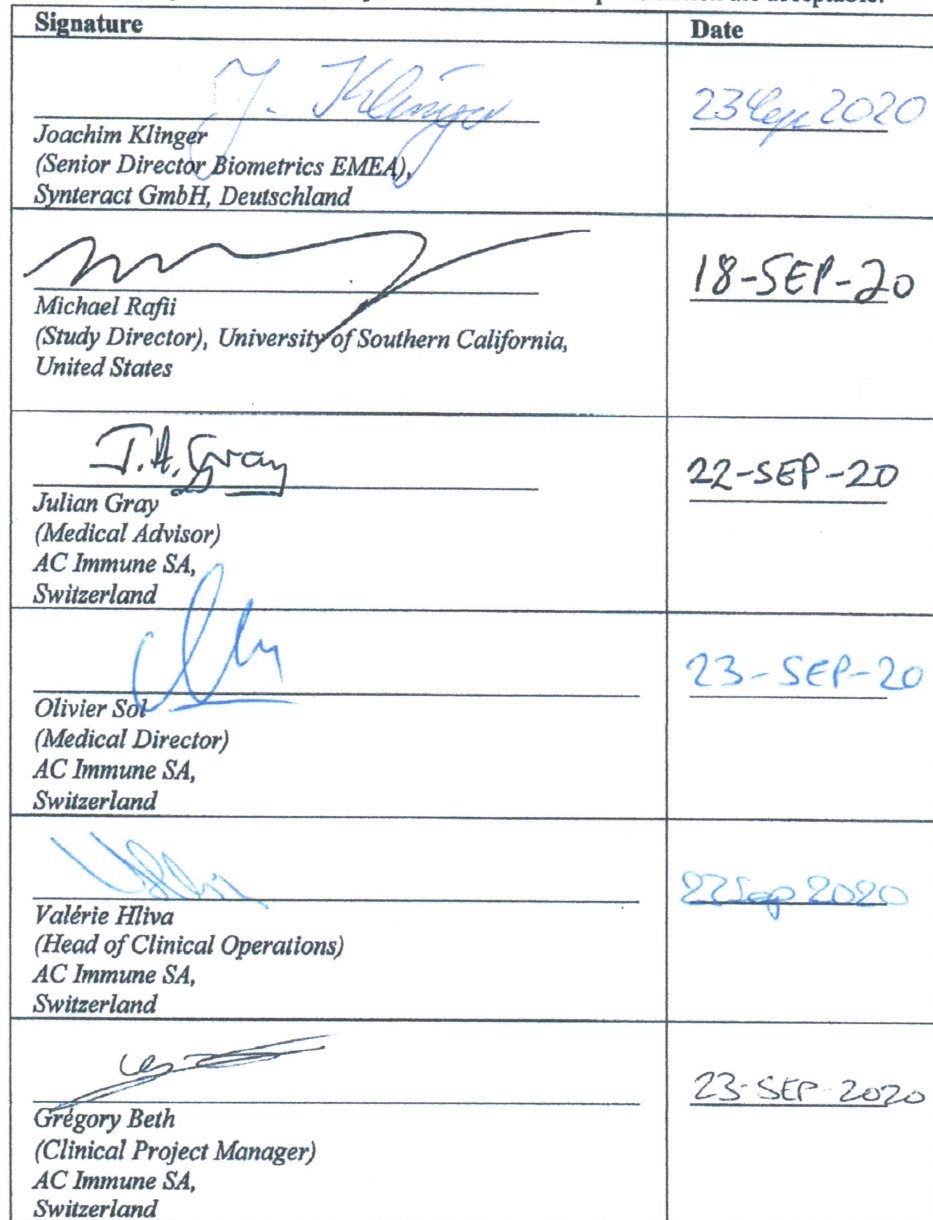 are acceptable.
Signature Date
J. Klinger 23 Sep 2020
Joachim Klinger
(Senior Director Biometrics EMEA),
Synteract GmbH, Deutschland
18-SEP-20
Michael Rafii
(Study Director), University of Southern California,
United States
J.A. Gray 22-SEP-20
Julian Gray
(Medical Advisor)
AC Immune SA,
Switzerland
23-SEP-20
Olivier Sol
(Medical Director)
AC Immune SA,
Switzerland
22Sep 2020
Valérie Hliva
(Head of Clinical Operations)
AC Immune SA,
Switzerland
23-SEP-2020
Grégory Beth
(Clinical Project Manager)
AC Immune SA,
Switzerland